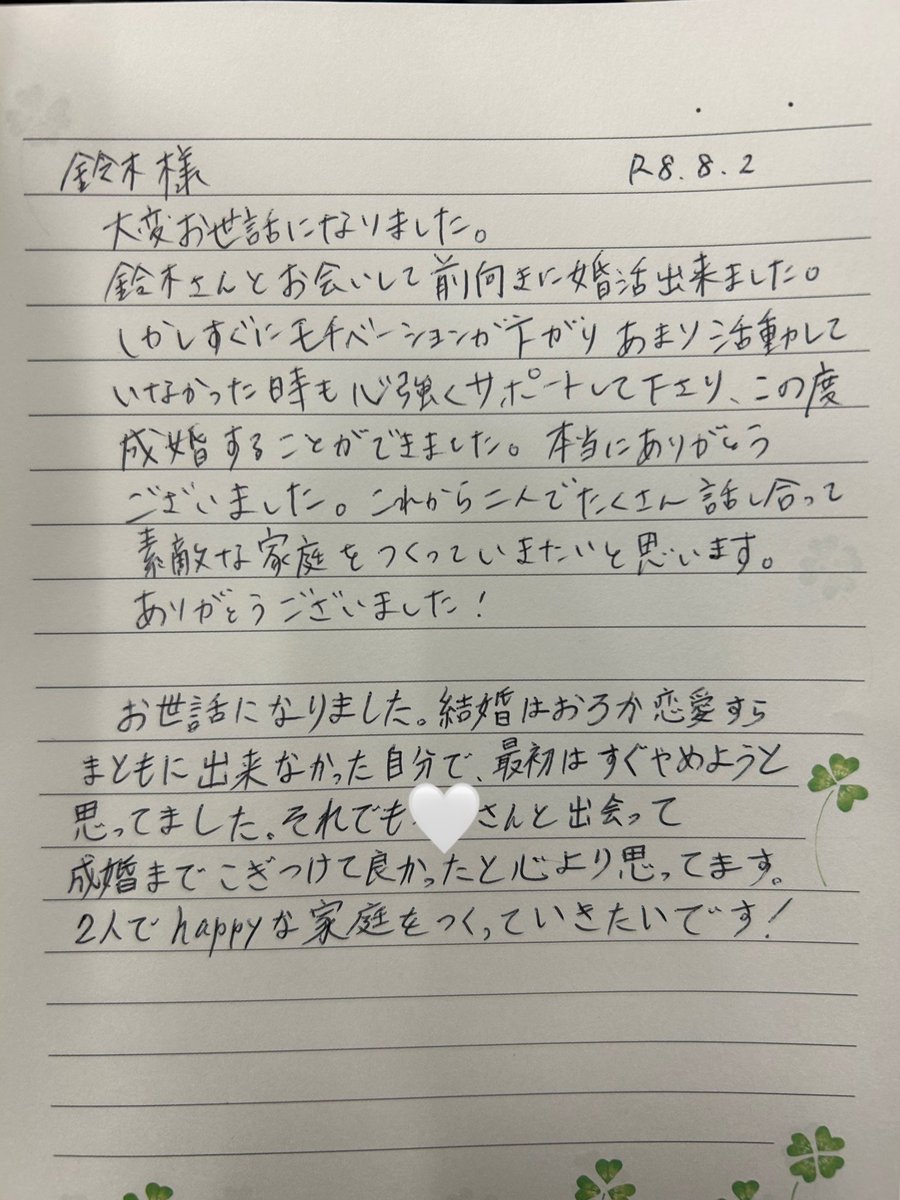 鈴木様 R8.8.2
大変お世話になりました。
鈴木さんとお会いして前向きに婚活出来ました。
しかしすぐにモチベーションが下がりあまり活動して
いなかった時も心強くサポートして下さり、この度
成婚することができました。本当にありがとう
ございました。これから二人でたくさん話し合って
素敵な家庭をつくっていきたいと思います。
ありがとうございました!
お世話になりました。結婚はおろか恋愛すら
まともに出来なかった自分で、最初はすぐやめようと
思ってました。それでも さんと出会って
成婚までこぎつけて良かったと心より思ってます。
2人でhappyな家庭をつくっていきたいです!